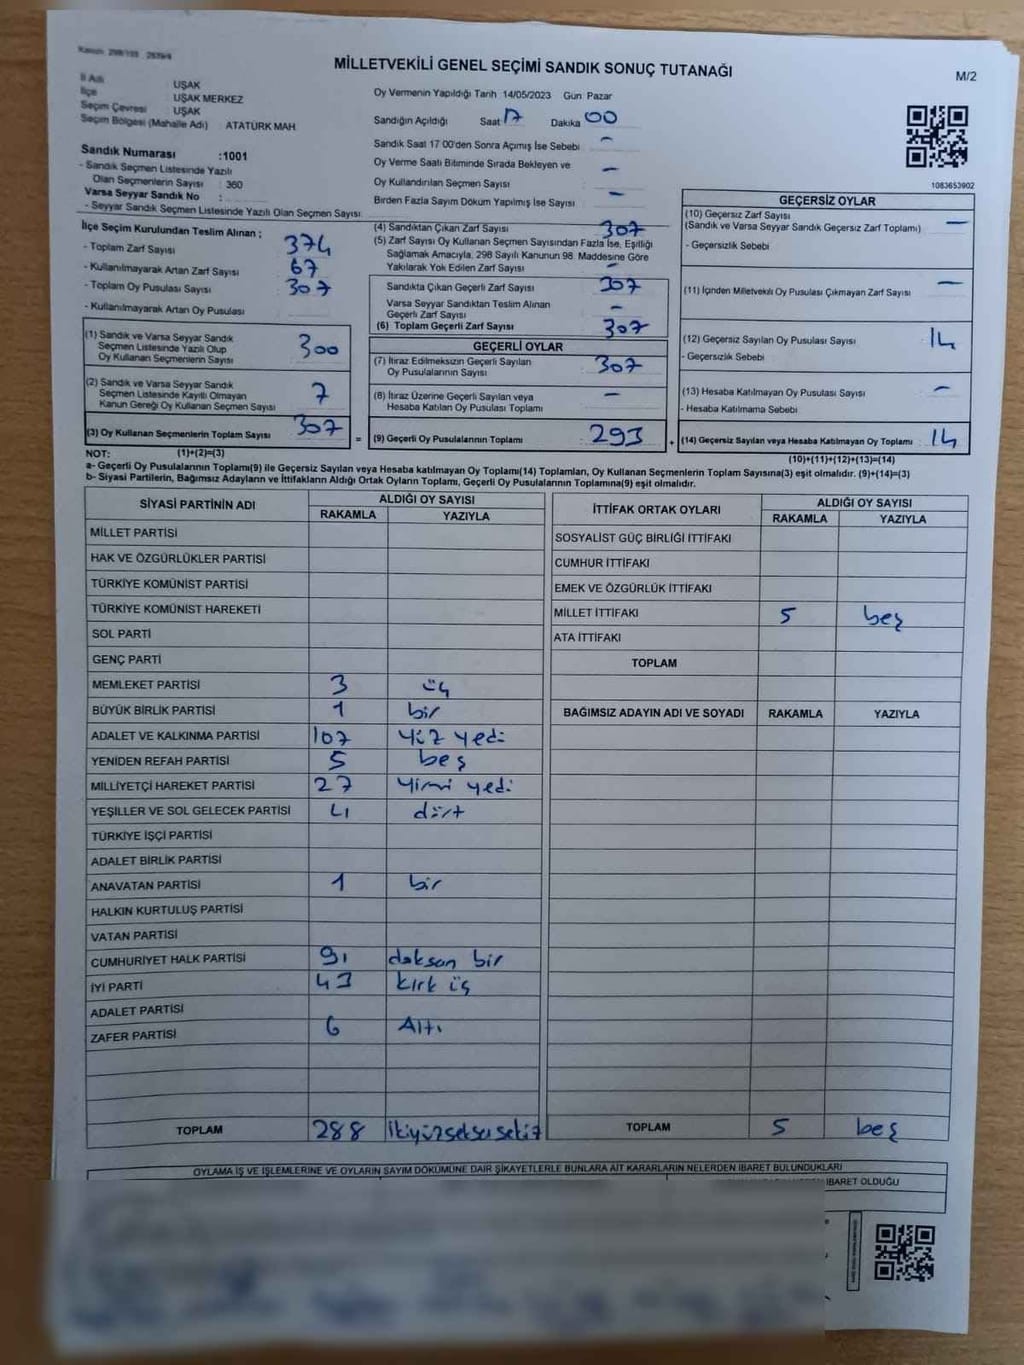 MİLLETVEKİLİ GENEL SEÇİMİ SANDIK SONUÇ TUTANAĞI
M/2
İl Adı UŞAK
İlçe UŞAK MERKEZ
Seçim Çevresi UŞAK
Seçim Bölgesi (Mahalle Adı) ATATÜRK MAH
Sandık Numarası :1001
- Sandık Seçmen Listesinde Yazılı
Olan Seçmenlerin Sayısı : 360
Varsa Seyyar Sandık No :
- Seyyar Sandık Seçmen Listesinde Yazılı Olan Seçmen Sayısı
Oy Vermenin Yapıldığı Tarih 14/05/2023 Gün Pazar
Sandığın Açıldığı Saat 17 Dakika 00
Sandık Saat 17 00'den Sonra Açımış İse Sebebi -
Oy Verme Saati Bitiminde Sırada Bekleyen ve
Oy Kullandırılan Seçmen Sayısı -
Birden Fazla Sayım Döküm Yapılmış İse Sayısı -
1083653902
İlçe Seçim Kurulundan Teslim Alınan ;
- Toplam Zarf Sayısı 374
- Kullanılmayarak Artan Zarf Sayısı 67
- Toplam Oy Pusulası Sayısı 307
- Kullanılmayarak Artan Oy Pusulası
(1) Sandık ve Varsa Seyyar Sandık
Seçmen Listesinde Yazılı Olup
Oy Kullanan Seçmenlerin Sayısı 300
(2) Sandık ve Varsa Seyyar Sandık
Seçmen Listesinde Kayıtlı Olmayan
Kanun Gereği Oy Kullanan Seçmen Sayısı 7
(3) Oy Kullanan Seçmenlerin Toplam Sayısı 307 =
(4) Sandıktan Çıkan Zarf Sayısı 307
(5) Zarf Sayısı Oy Kullanan Seçmen Sayısından Fazla İse, Eşitliği
Sağlamak Amacıyla, 298 Sayılı Kanunun 98. Maddesine Göre
Yakılarak Yok Edilen Zarf Sayısı -
Sandıkta Çıkan Geçerli Zarf Sayısı 307
Varsa Seyyar Sandıktan Teslim Alınan
Geçerli Zarf Sayısı -
(6) Toplam Geçerli Zarf Sayısı 307
GEÇERLİ OYLAR
(7) İtiraz Edilmeksizin Geçerli Sayılan
Oy Pusulalarının Sayısı 307
(8) İtiraz Üzerine Geçerli Sayılan veya
Hesaba Katılan Oy Pusulası Toplamı -
(9) Geçerli Oy Pusulalarının Toplamı : 293 +
GEÇERSİZ OYLAR
(10) Geçersiz Zarf Sayısı
(Sandık ve Varsa Seyyar Sandık Geçersiz Zarf Toplamı) -
- Geçersizlik Sebebi
(11) İçinden Milletvekili Oy Pusulası Çıkmayan Zarf Sayısı -
(12) Geçersiz Sayılan Oy Pusulası Sayısı 14
- Geçersizlik Sebebi
(13) Hesaba Katılmayan Oy Pusulası Sayısı -
- Hesaba Katılmama Sebebi
(14) Geçersiz Sayılan veya Hesaba Katılmayan Oy Toplamı : 14
NOT: (1)+(2)=(3) (10)+(11)+(12)+(13)=(14)
a- Geçerli Oy Pusulalarının Toplamı(9) ile Geçersiz Sayılan veya Hesaba katılmayan Oy Toplamı(14) Toplamları, Oy Kullanan Seçmenlerin Toplam Sayısına(3) eşit olmalıdır. (9)+(14)=(3)
b- Siyasi Partilerin, Bağımsız Adayların ve İttifakların Aldığı Ortak Oyların Toplamı, Geçerli Oy Pusulalarının Toplamına(9) eşit olmalıdır.
SİYASİ PARTİNİN ADI ALDIĞI OY SAYISI
RAKAMLA YAZIYLA
MİLLET PARTİSİ
HAK VE ÖZGÜRLÜKLER PARTİSİ
TÜRKİYE KOMÜNİST PARTİSİ
TÜRKİYE KOMÜNİST HAREKETİ
SOL PARTİ
GENÇ PARTİ
MEMLEKET PARTİSİ 3 üç
BÜYÜK BİRLİK PARTİSİ 1 bir
ADALET VE KALKINMA PARTİSİ 107 yüz yedi
YENİDEN REFAH PARTİSİ 5 beş
MİLLİYETÇİ HAREKET PARTİSİ 27 yirmi yedi
YEŞİLLER VE SOL GELECEK PARTİSİ 4 dört
TÜRKİYE İŞÇİ PARTİSİ
ADALET BİRLİK PARTİSİ
ANAVATAN PARTİSİ 1 bir
HALKIN KURTULUŞ PARTİSİ
VATAN PARTİSİ
CUMHURİYET HALK PARTİSİ 91 doksan bir
İYİ PARTİ 43 kırk üç
ADALET PARTİSİ
ZAFER PARTİSİ 6 Altı
TOPLAM 288 ikiyüzseksensekiz
İTTİFAK ORTAK OYLARI ALDIĞI OY SAYISI
RAKAMLA YAZIYLA
SOSYALİST GÜÇ BİRLİĞİ İTTİFAKI
CUMHUR İTTİFAKI
EMEK VE ÖZGÜRLÜK İTTİFAKI
MİLLET İTTİFAKI 5 beş
ATA İTTİFAKI
TOPLAM
BAĞIMSIZ ADAYIN ADI VE SOYADI RAKAMLA YAZIYLA
TOPLAM 5 beş
OYLAMA İŞ VE İŞLEMLERİNE VE OYLARIN SAYIM DÖKÜMÜNE DAİR ŞİKAYETLERLE BUNLARA AİT KARARLARIN NELERDEN İBARET BULUNDUKLARI
İBARET OLDUĞU